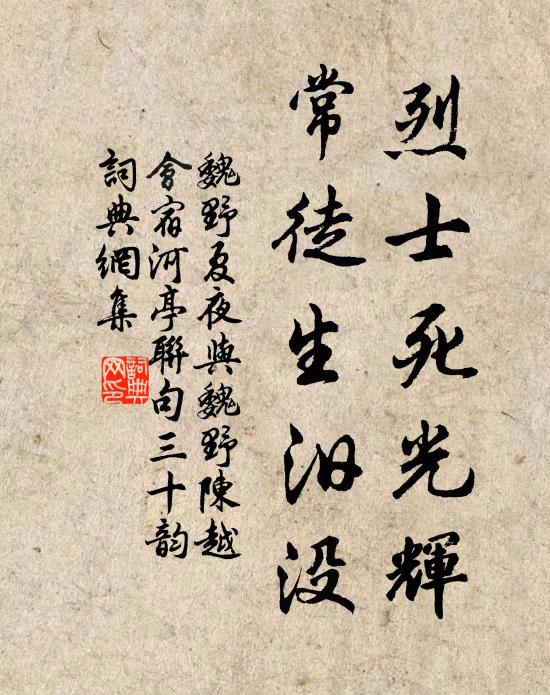 烈士死光輝
常徒生汨没
魏野夏夜與魏野陳越
會宿河亭聯句三十韵
詞典網集
詞典網印